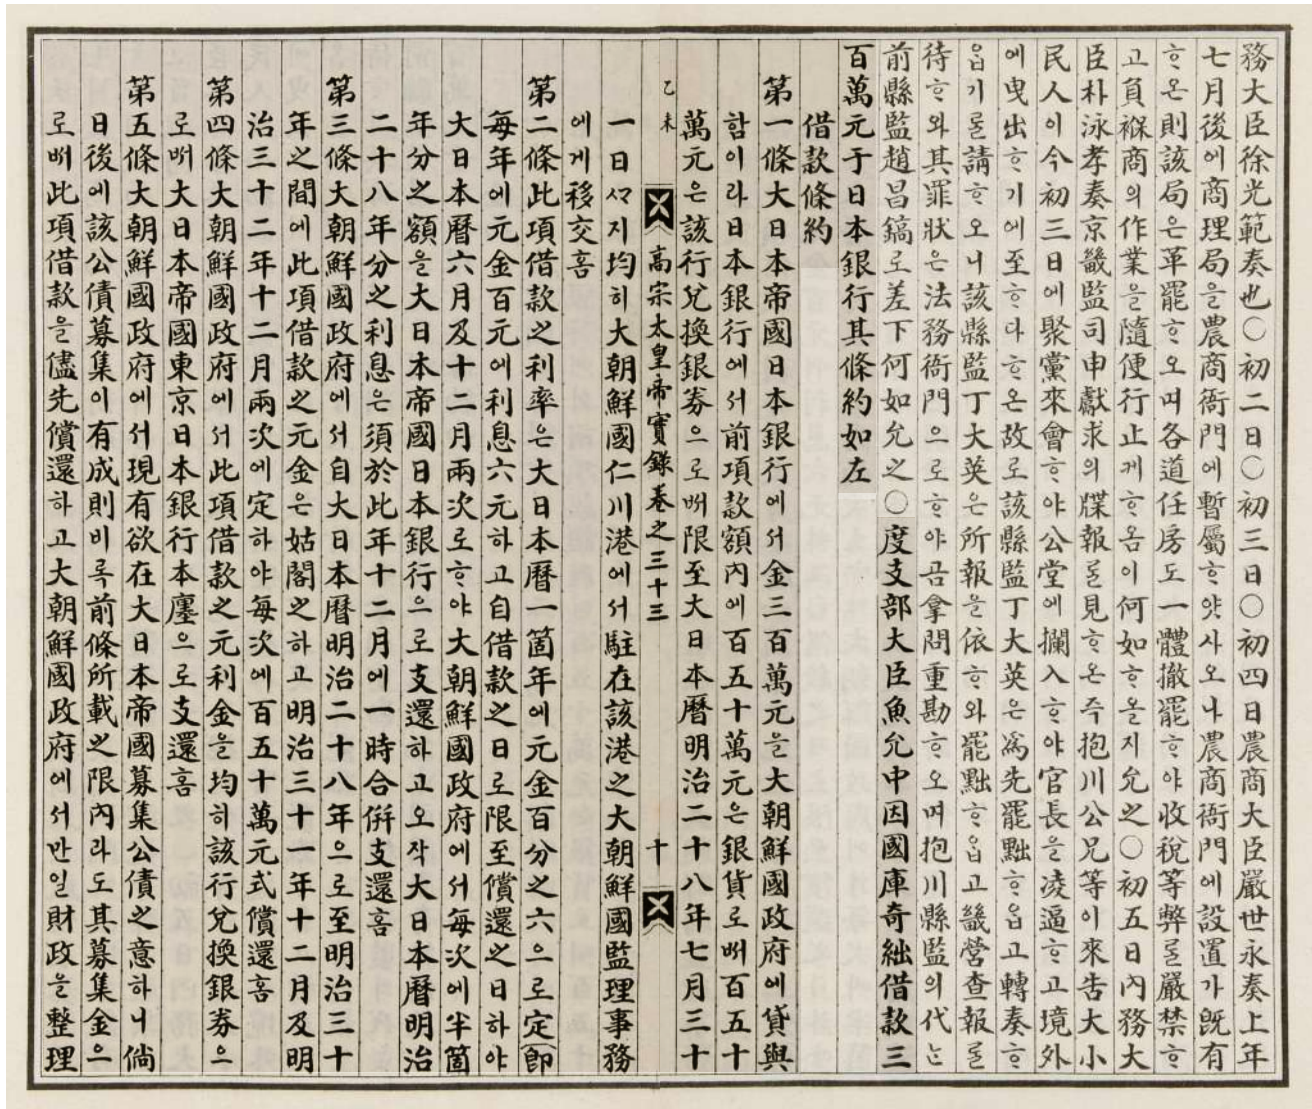 務大臣徐光範奏也○初二日○初三日○初四日農商大臣嚴世永奏上年
七月後에商理局을農商衙門에暫屬ᄒᆞ얏사오나農商衙門에設置가旣有
ᄒᆞ온則該局은革罷ᄒᆞ오며各道任房도一體撤罷ᄒᆞ야收稅等弊ᄅᆞᆯ嚴禁ᄒᆞ
고負褓商의作業을隨便行止게ᄒᆞ옴이何如ᄒᆞ올지允之○初五日內務大
臣朴泳孝奏京畿監司申獻求의牒報ᄅᆞᆯ見ᄒᆞ온즉抱川公兄等이來告大小
民人이今初三日에聚黨來會ᄒᆞ야公堂에攔入ᄒᆞ야官長을凌逼ᄒᆞ고境外
에曳出ᄒᆞ기에至ᄒᆞ다ᄒᆞ온故로該縣監丁大英은爲先罷黜ᄒᆞ옵고轉奏ᄒᆞ
옵기ᄅᆞᆯ請ᄒᆞ오니該縣監丁大英은所報을依ᄒᆞ와罷黜ᄒᆞ옵고畿營查報ᄅᆞᆯ
待ᄒᆞ와其罪狀은法務衙門으로ᄒᆞ야곰拿問重勘ᄒᆞ오며抱川縣監의代ᄂᆞᆫ
前縣監趙昌鎬로差下何如允之○度支部大臣魚允中因國庫奇絀借款三
百萬元于日本銀行其條約如左
借款條約
第一條大日本帝國日本銀行에셔金三百萬元을大朝鮮國政府에貸與
함이라日本銀行에셔前項款額內에百五十萬元은銀貨로ᄡᅥ百五十
萬元은該行兌換銀券으로ᄡᅥ限至大日本曆明治二十八年七月三十
乙未 高宗太皇帝實錄卷之三十三 十
一日ᄭᆞ지均히大朝鮮國仁川港에셔駐在該港之大朝鮮國監理事務
에게移交홈
第二條此項借款之利率은大日本曆一箇年에元金百分之六으로定即
每年에元金百元에利息六元하고自借款之日로限至償還之日하야
大日本曆六月及十二月兩次로ᄒᆞ야大朝鮮國政府에셔每次에半箇
年分之額을大日本帝國日本銀行으로支還하고오작大日本曆明治
二十八年分之利息은須於此年十二月에一時合併支還홈
第三條大朝鮮國政府에셔自大日本曆明治二十八年으로至明治三十
年之間에此項借款之元金은姑閣之하고明治三十一年十二月及明
治三十二年十二月兩次에定하야每次에百五十萬元式償還홈
第四條大朝鮮國政府에셔此項借款之元利金을均히該行兌換銀券으
로ᄡᅥ大日本帝國東京日本銀行本廛으로支還홈
第五條大朝鮮國政府에셔現有欲在大日本帝國募集公債之意하니倘
日後에該公債募集이有成則비록前條所載之限內라도其募集金으
로ᄡᅥ此項借款을儘先償還하고大朝鮮國政府에셔만일財政을整理